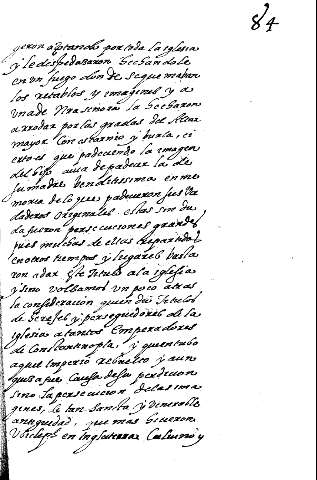 84
yeron açotando por toda la iglesia
y le despedazaron hechandole
en un fuego donde se quemaban
los retablos y ymagenes y a
una de Nra Señora la hecharon
a rrodar por las gradas del Altar
mayor con escarnio y burla, ci
erto es que padeciendo la imagen
del hijo avia de padecer la de
su madre benditissima en me
moria de lo que padecieron sus ver
daderos originales estas sin du
da fueron persecuciones grandes
pues muchas de ellas repartidas
en otros tiempos y lugares basta
ron a dar este titulo a la iglesia
y sino volbamos un poco atras
la consideracion quien dio titulos
de hereges y perseguidores de la
iglesia a tantos Emperadores
de Constantinopla, y quien tubo
aquel imperio rebuelto y aun
quiza fue causa de su perdicion
sino la persecucion de las ima
genes, de tan santa y venerable
antiguedad, que mas hicieron
Vbicleph en Inglaterra Caluino y